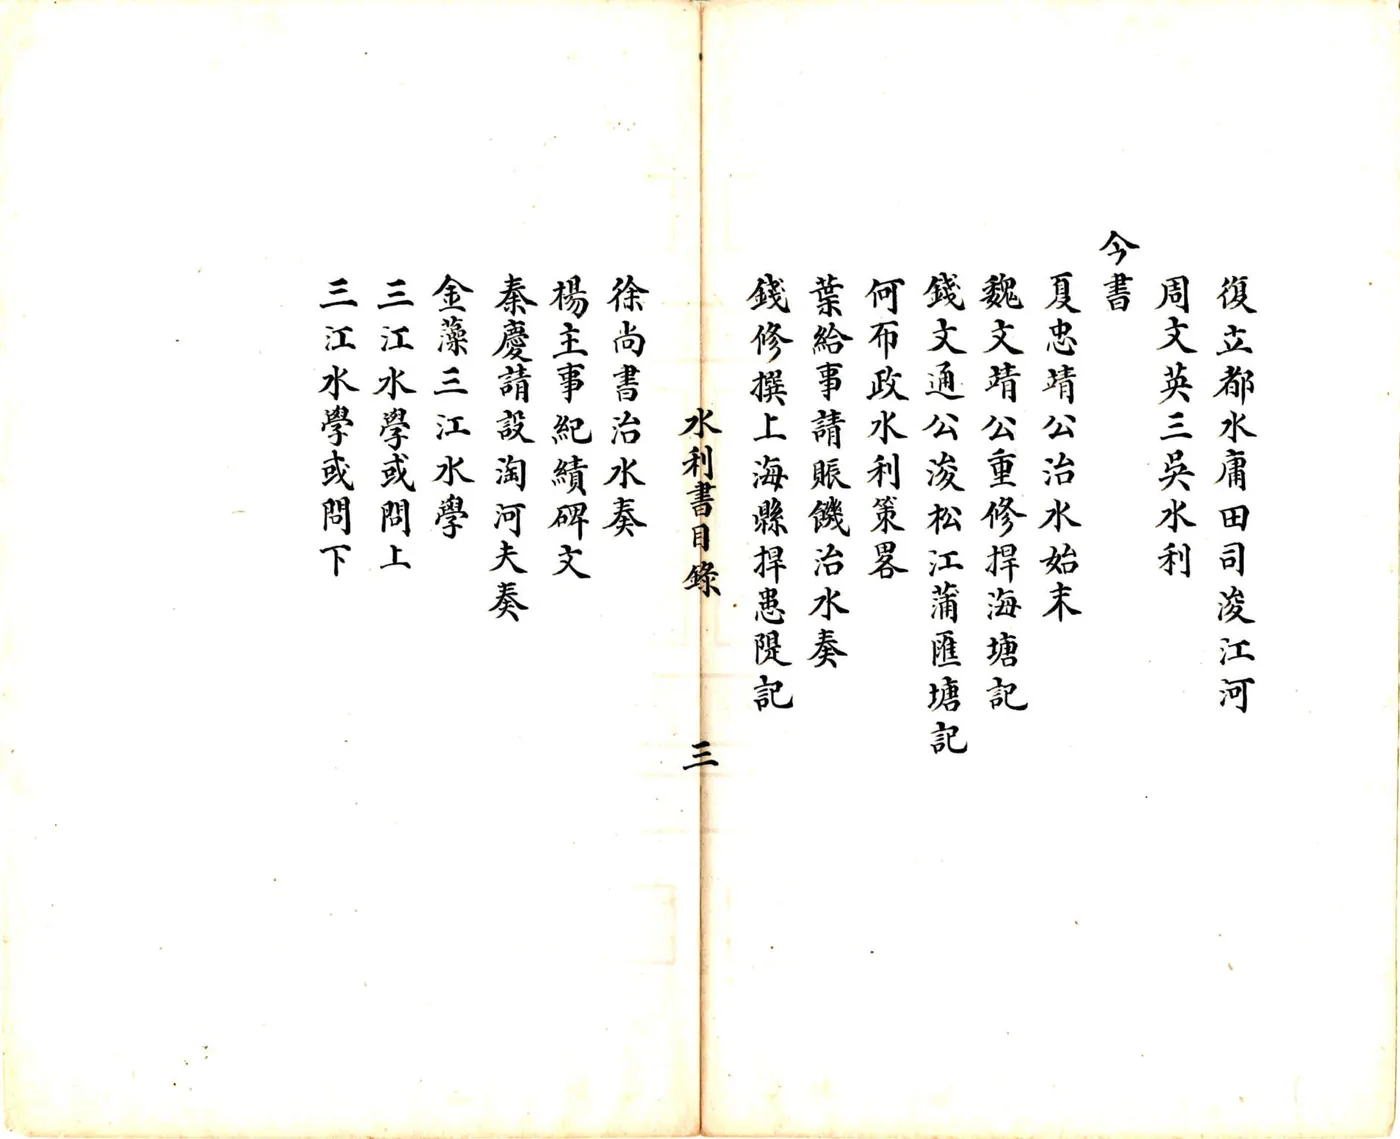 復立都水庸田司浚江河
周文英三吳水利
今書
夏忠靖公治水始末
魏文靖公重修捍海塘記
錢文通公浚松江蒲匯塘記
何布政水利策畧
葉給事請賑饑治水奏
錢修撰上海縣捍患隄記
水利書目錄
三
徐尚書治水奏
楊主事紀績碑文
秦慶請設淘河夫奏
金藻三江水學
三江水學或問上
三江水學或問下